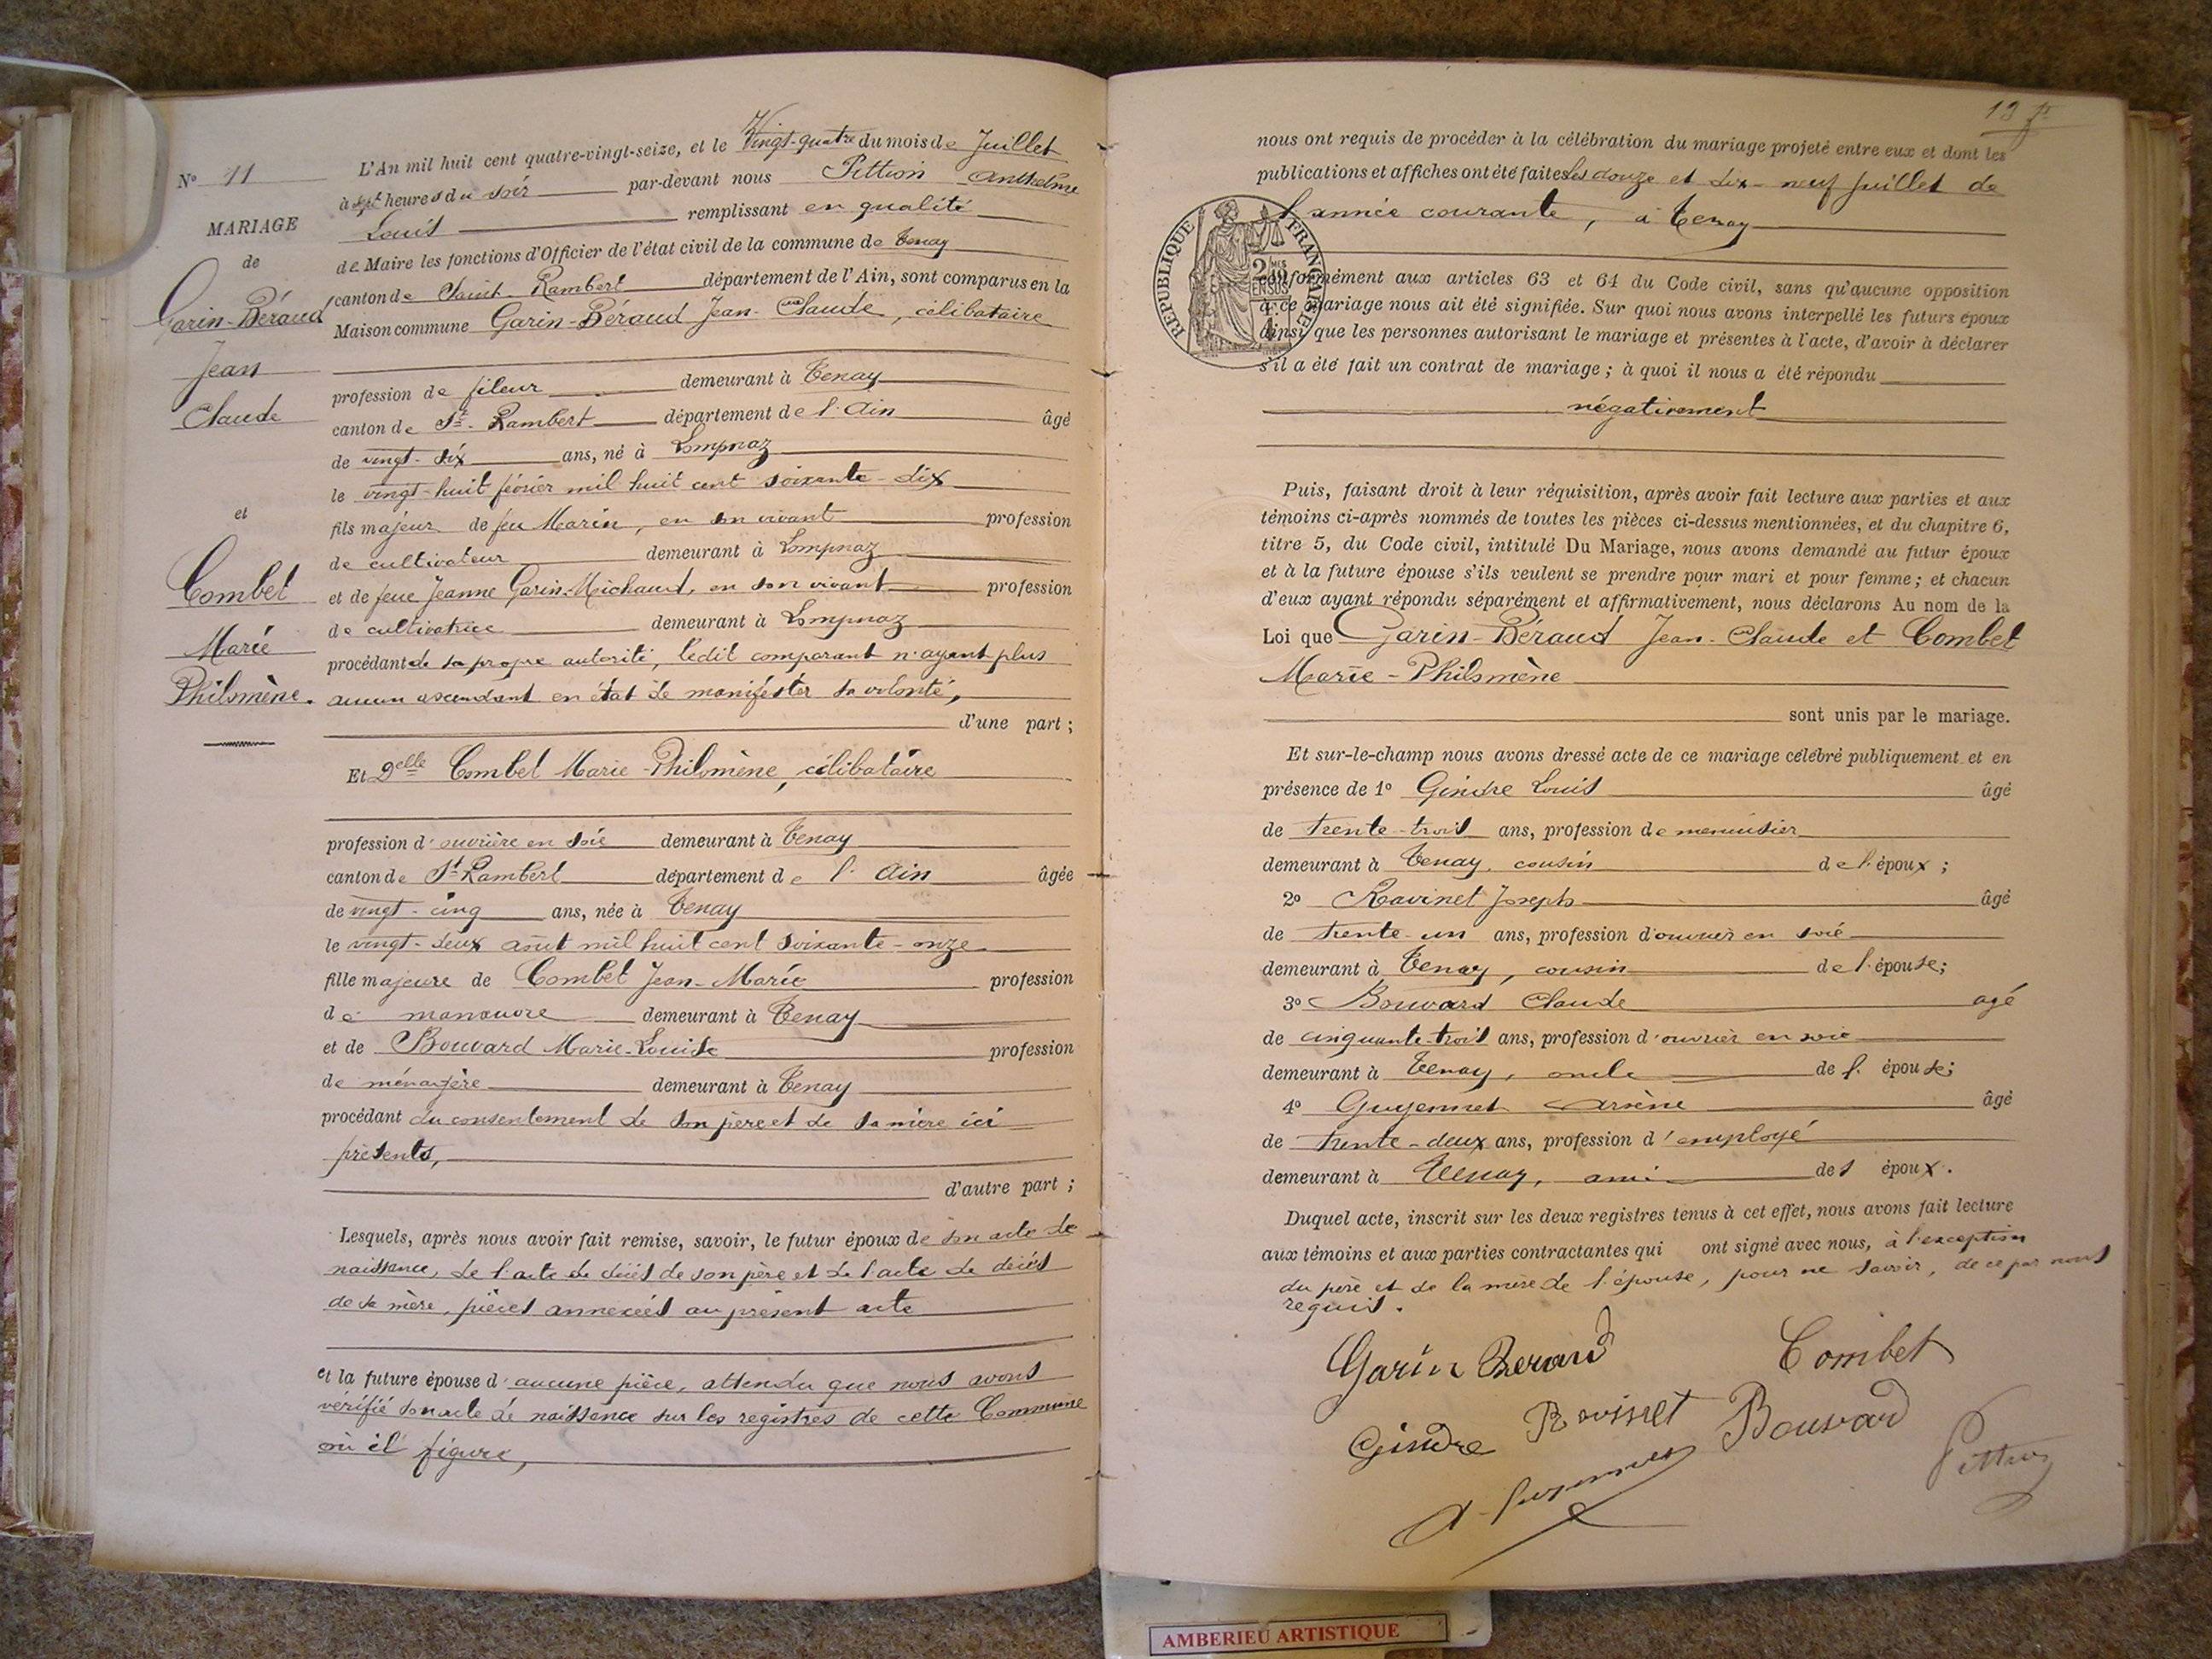 N° 11
MARIAGE
de
Garin-Béraud
Jean
Claude
et
Combet
Marie
Philomène.
L'An mil huit cent quatre-vingt-seize, et le Vingt-quatre du mois de Juillet
à sept heures du soir par-devant nous Pittion Anthelme
Louis remplissant en qualité
de Maire les fonctions d'Officier de l'état civil de la commune de Tenay
canton de Saint Rambert département de l'Ain, sont comparus en la
Maison commune Garin-Béraud Jean-Claude, célibataire
profession de fileur demeurant à Tenay
canton de St-Rambert département de l'Ain âgé
de vingt-six ans, né à Lompnaz
le vingt-huit février mil huit cent soixante-dix
fils majeur de feu Marin, en son vivant profession
de cultivateur demeurant à Lompnaz
et de feue Jeanne Garin-Michaud, en son vivant profession
de cultivatrice demeurant à Lompnaz
procédant de sa propre autorité, ledit comparant n'ayant plus
aucun ascendant en état de manifester sa volonté,
d'une part ;
Et Delle Combet Marie-Philomène, célibataire
profession d'ouvrière en soie demeurant à Tenay
canton de St-Rambert département de l'Ain âgée
de vingt-cinq ans, née à Tenay
le vingt-deux août mil huit cent soixante-onze
fille majeure de Combet Jean-Marie profession
de manouvre demeurant à Tenay
et de Bouvard Marie-Louise profession
de ménagère demeurant à Tenay
procédant du consentement de son père et de sa mère ici
présents,
d'autre part ;
Lesquels, après nous avoir fait remise, savoir, le futur époux de son acte de
naissance, de l'acte de décès de son père et de l'acte de décès
de sa mère, pièces annexées au présent acte
et la future épouse d'aucune pièce, attendu que nous avons
vérifié son acte de naissance sur les registres de cette Commune
où il figure,
nous ont requis de procéder à la célébration du mariage projeté entre eux et dont les
publications et affiches ont été faites les douze et dix-neuf juillet de
l'année courante, à Tenay
RÉPUBLIQUE FRANÇAISE
conformément aux articles 63 et 64 du Code civil, sans qu'aucune opposition
à ce mariage nous ait été signifiée. Sur quoi nous avons interpellé les futurs époux
ainsi que les personnes autorisant le mariage et présentes à l'acte, d'avoir à déclarer
s'il a été fait un contrat de mariage ; à quoi il nous a été répondu
négativement
Puis, faisant droit à leur réquisition, après avoir fait lecture aux parties et aux
témoins ci-après nommés de toutes les pièces ci-dessus mentionnées, et du chapitre 6,
titre 5, du Code civil, intitulé Du Mariage, nous avons demandé au futur époux
et à la future épouse s'ils veulent se prendre pour mari et pour femme ; et chacun
d'eux ayant répondu séparément et affirmativement, nous déclarons Au nom de la
Loi que Garin-Béraud Jean-Claude et Combet
Marie-Philomène
sont unis par le mariage.
Et sur-le-champ nous avons dressé acte de ce mariage célébré publiquement et en
présence de 1° Gindre Louis âgé
de trente-trois ans, profession de menuisier
demeurant à Tenay, cousin de l'époux ;
2° Ravinet Joseph âgé
de trente-un ans, profession d'ouvrier en soie
demeurant à Tenay, cousin de l'épouse ;
3° Bouvard Claude âgé
de cinquante-trois ans, profession d'ouvrier en soie
demeurant à Tenay, oncle de l'épouse ;
4° Guyennet Arsène âgé
de trente-deux ans, profession d'employé
demeurant à Tenay, ami des époux.
Duquel acte, inscrit sur les deux registres tenus à cet effet, nous avons fait lecture
aux témoins et aux parties contractantes qui ont signé avec nous, à l'exception
du père et de la mère de l'épouse, pour ne savoir, de ce par nous
requis.
Garin Beraud Combet
Gindre Ravinet Bouvard
A Guyennet Pittion
AMBERIEU ARTISTIQUE